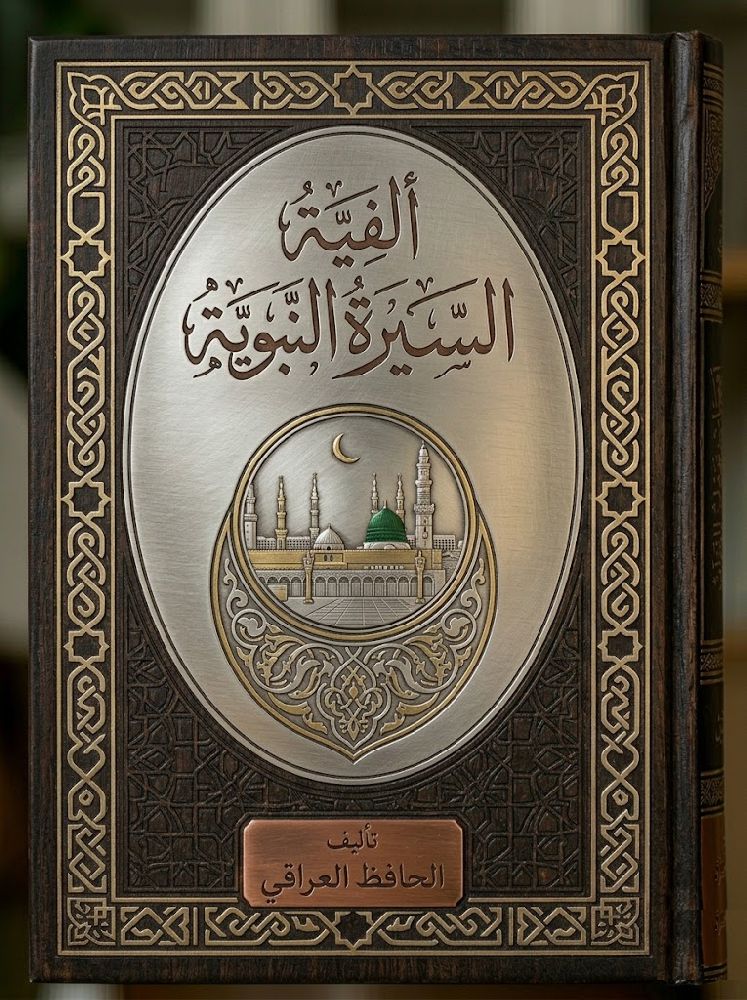 ألفِيَّةُ
السِّيَرَةُ النَّبَوِيَّةُ
تأليف
الحافظ العراقي